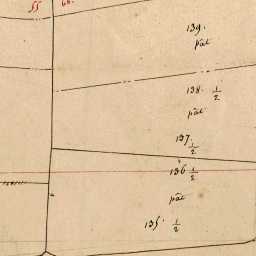 55
60.
139.
pât
138. 1/2
pât
137. 1/2
136 1/2
pât
135. 1/2